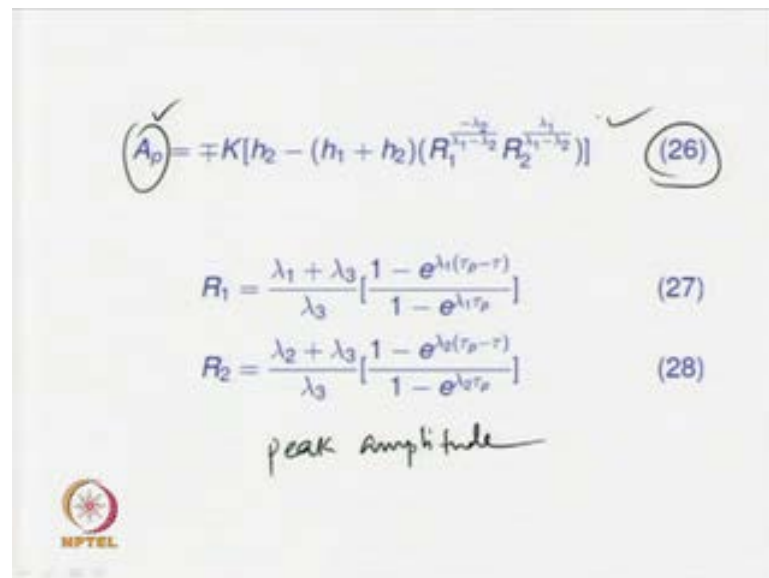 A_p = ∓K[h_2 − (h_1 + h_2)(R_1^{\frac{-λ_2}{λ_1−λ_2}} R_2^{\frac{λ_1}{λ_1−λ_2}})] (26)
R_1 = \frac{λ_1 + λ_3}{λ_3}[\frac{1 − e^{λ_1(τ_p−τ)}}{1 − e^{λ_1τ_p}}] (27)
R_2 = \frac{λ_2 + λ_3}{λ_3}[\frac{1 − e^{λ_2(τ_p−τ)}}{1 − e^{λ_2τ_p}}] (28)
peak amplitude
NPTEL